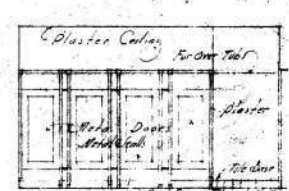 Plaster Ceiling
Fur Over Tubs
Plaster
Metal Doors
Metal Stalls
Tile Base